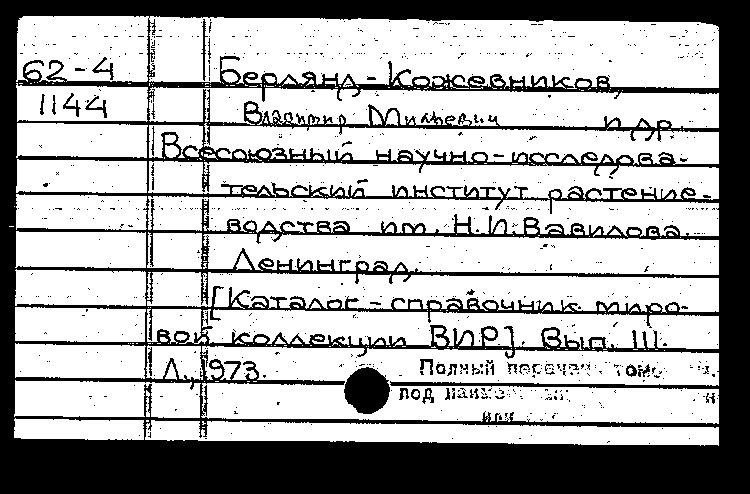 62-4 Берлянд-Кожевников,
1144 Владимир Михеевич и др.
Всесоюзный научно-исследова-
тельский институт растение-
водства им. Н.И.Вавилова.
Ленинград.
[Каталог-справочник миро-
вой коллекции ВИР]. Вып. III.
Л., 1973.
Полный перечень томо
под наимено
или